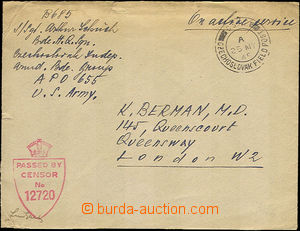 B685
On active service
S/Sgt. Arthur
Bde. H.Q. Sqn.
Czechoslovak Indep.
Armd. Bde. Group
A P O 655
U. S. Army.
A
CZECHOSLOVAK FIELD POST
K. BERMAN, M.D.
145, Queenscourt
Queensway
London W2
PASSED BY
CENSOR
No
12720
burda-auction.com